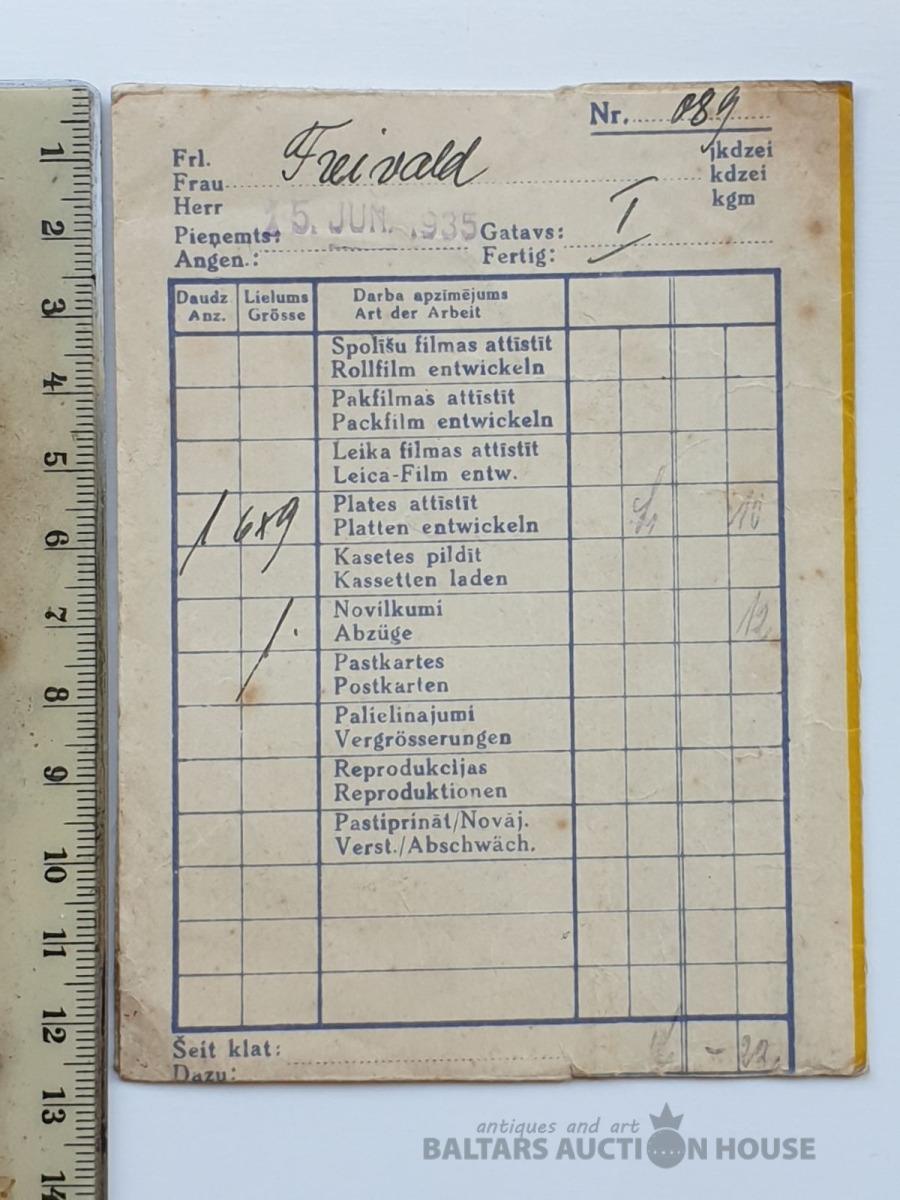 Nr. 089
Frl.
Frau Freivald
Herr
jkdzei
kdzei
kgm
Pieņemts: 15. JUN. 1935 Gatavs:
Angen.: Fertig: I
Daudz Lielums Darba apzīmējums
Anz. Grösse Art der Arbeit
Spolīšu filmas attīstīt
Rollfilm entwickeln
Pakfilmas attīstīt
Packfilm entwickeln
Leika filmas attīstīt
Leica-Film entw.
1 6x9 Plates attīstīt 10
Platten entwickeln
Kasetes pildīt
Kassetten laden
1. Novilkumi 12
Abzüge
Pastkartes
Postkarten
Palielinajumi
Vergrösserungen
Reprodukcijas
Reproduktionen
Pastiprināt/Novāj.
Verst./Abschwäch.
Šeit klat: - 22
Dazu:
1
2
3
4
5
6
7
8
9
10
11
12
13
14
antiques and art
BALTARS AUCTION HOUSE